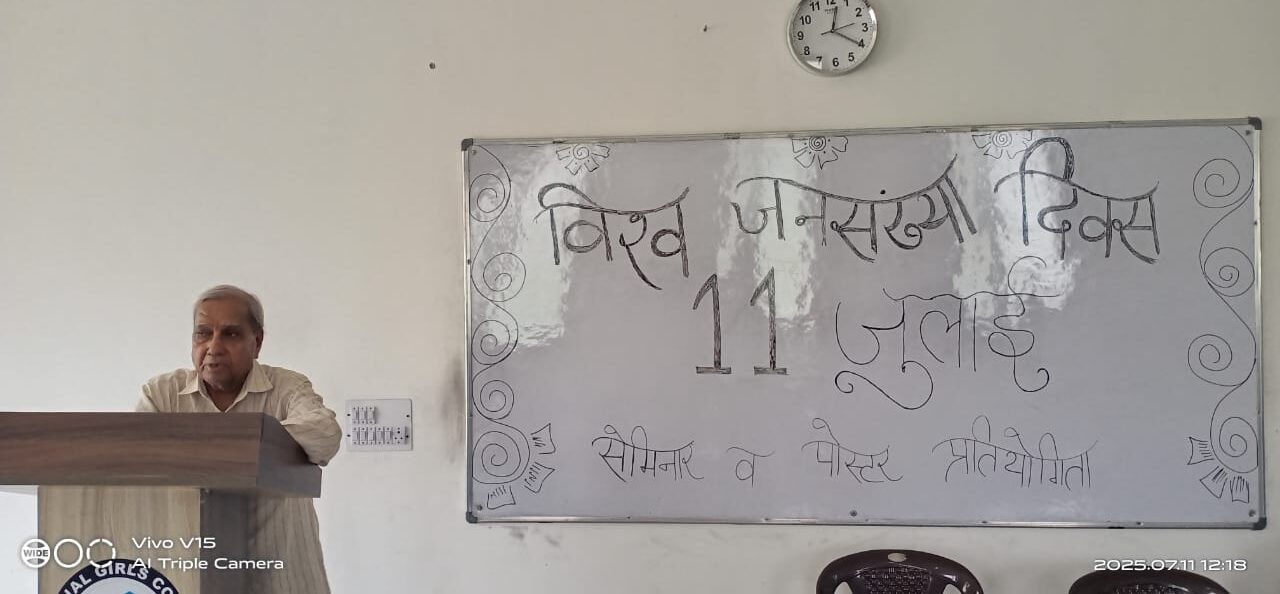 11 12 1 2 3 4 5 6 7 8 9 10
विश्व जनसंख्या दिवस
11 जुलाई
सेमिनार व पोस्टर प्रतियोगिता
WIDE
Vivo V15
AI Triple Camera
GIRLS
2025.07.11 12:18